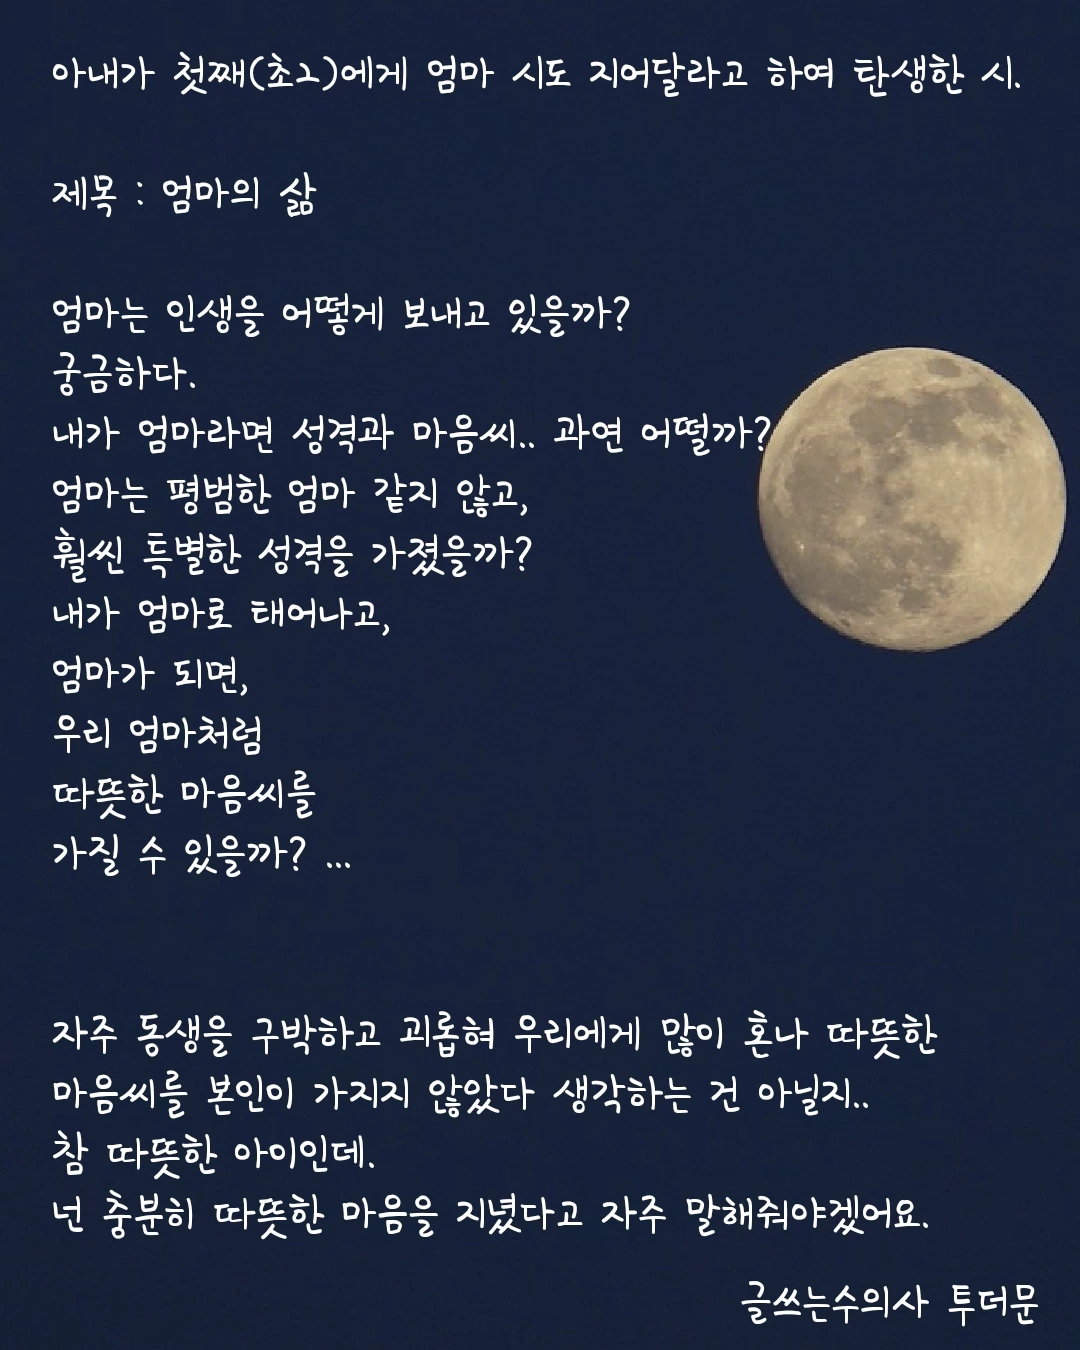 아내가 첫째(초2)에게 엄마 시도 지어달라고 하여 탄생한 시.
제목 : 엄마의 삶
엄마는 인생을 어떻게 보내고 있을까?
궁금하다.
내가 엄마라면 성격과 마음씨.. 과연 어떨까?
엄마는 평범한 엄마 같지 않고,
훨씬 특별한 성격을 가졌을까?
내가 엄마로 태어나고,
엄마가 되면,
우리 엄마처럼
따뜻한 마음씨를
가질 수 있을까? ...
자주 동생을 구박하고 괴롭혀 우리에게 많이 혼나 따뜻한
마음씨를 본인이 가지지 않았다 생각하는 건 아닐지..
참 따뜻한 아이인데.
넌 충분히 따뜻한 마음을 지녔다고 자주 말해줘야겠어요.
글쓰는수의사 투더문